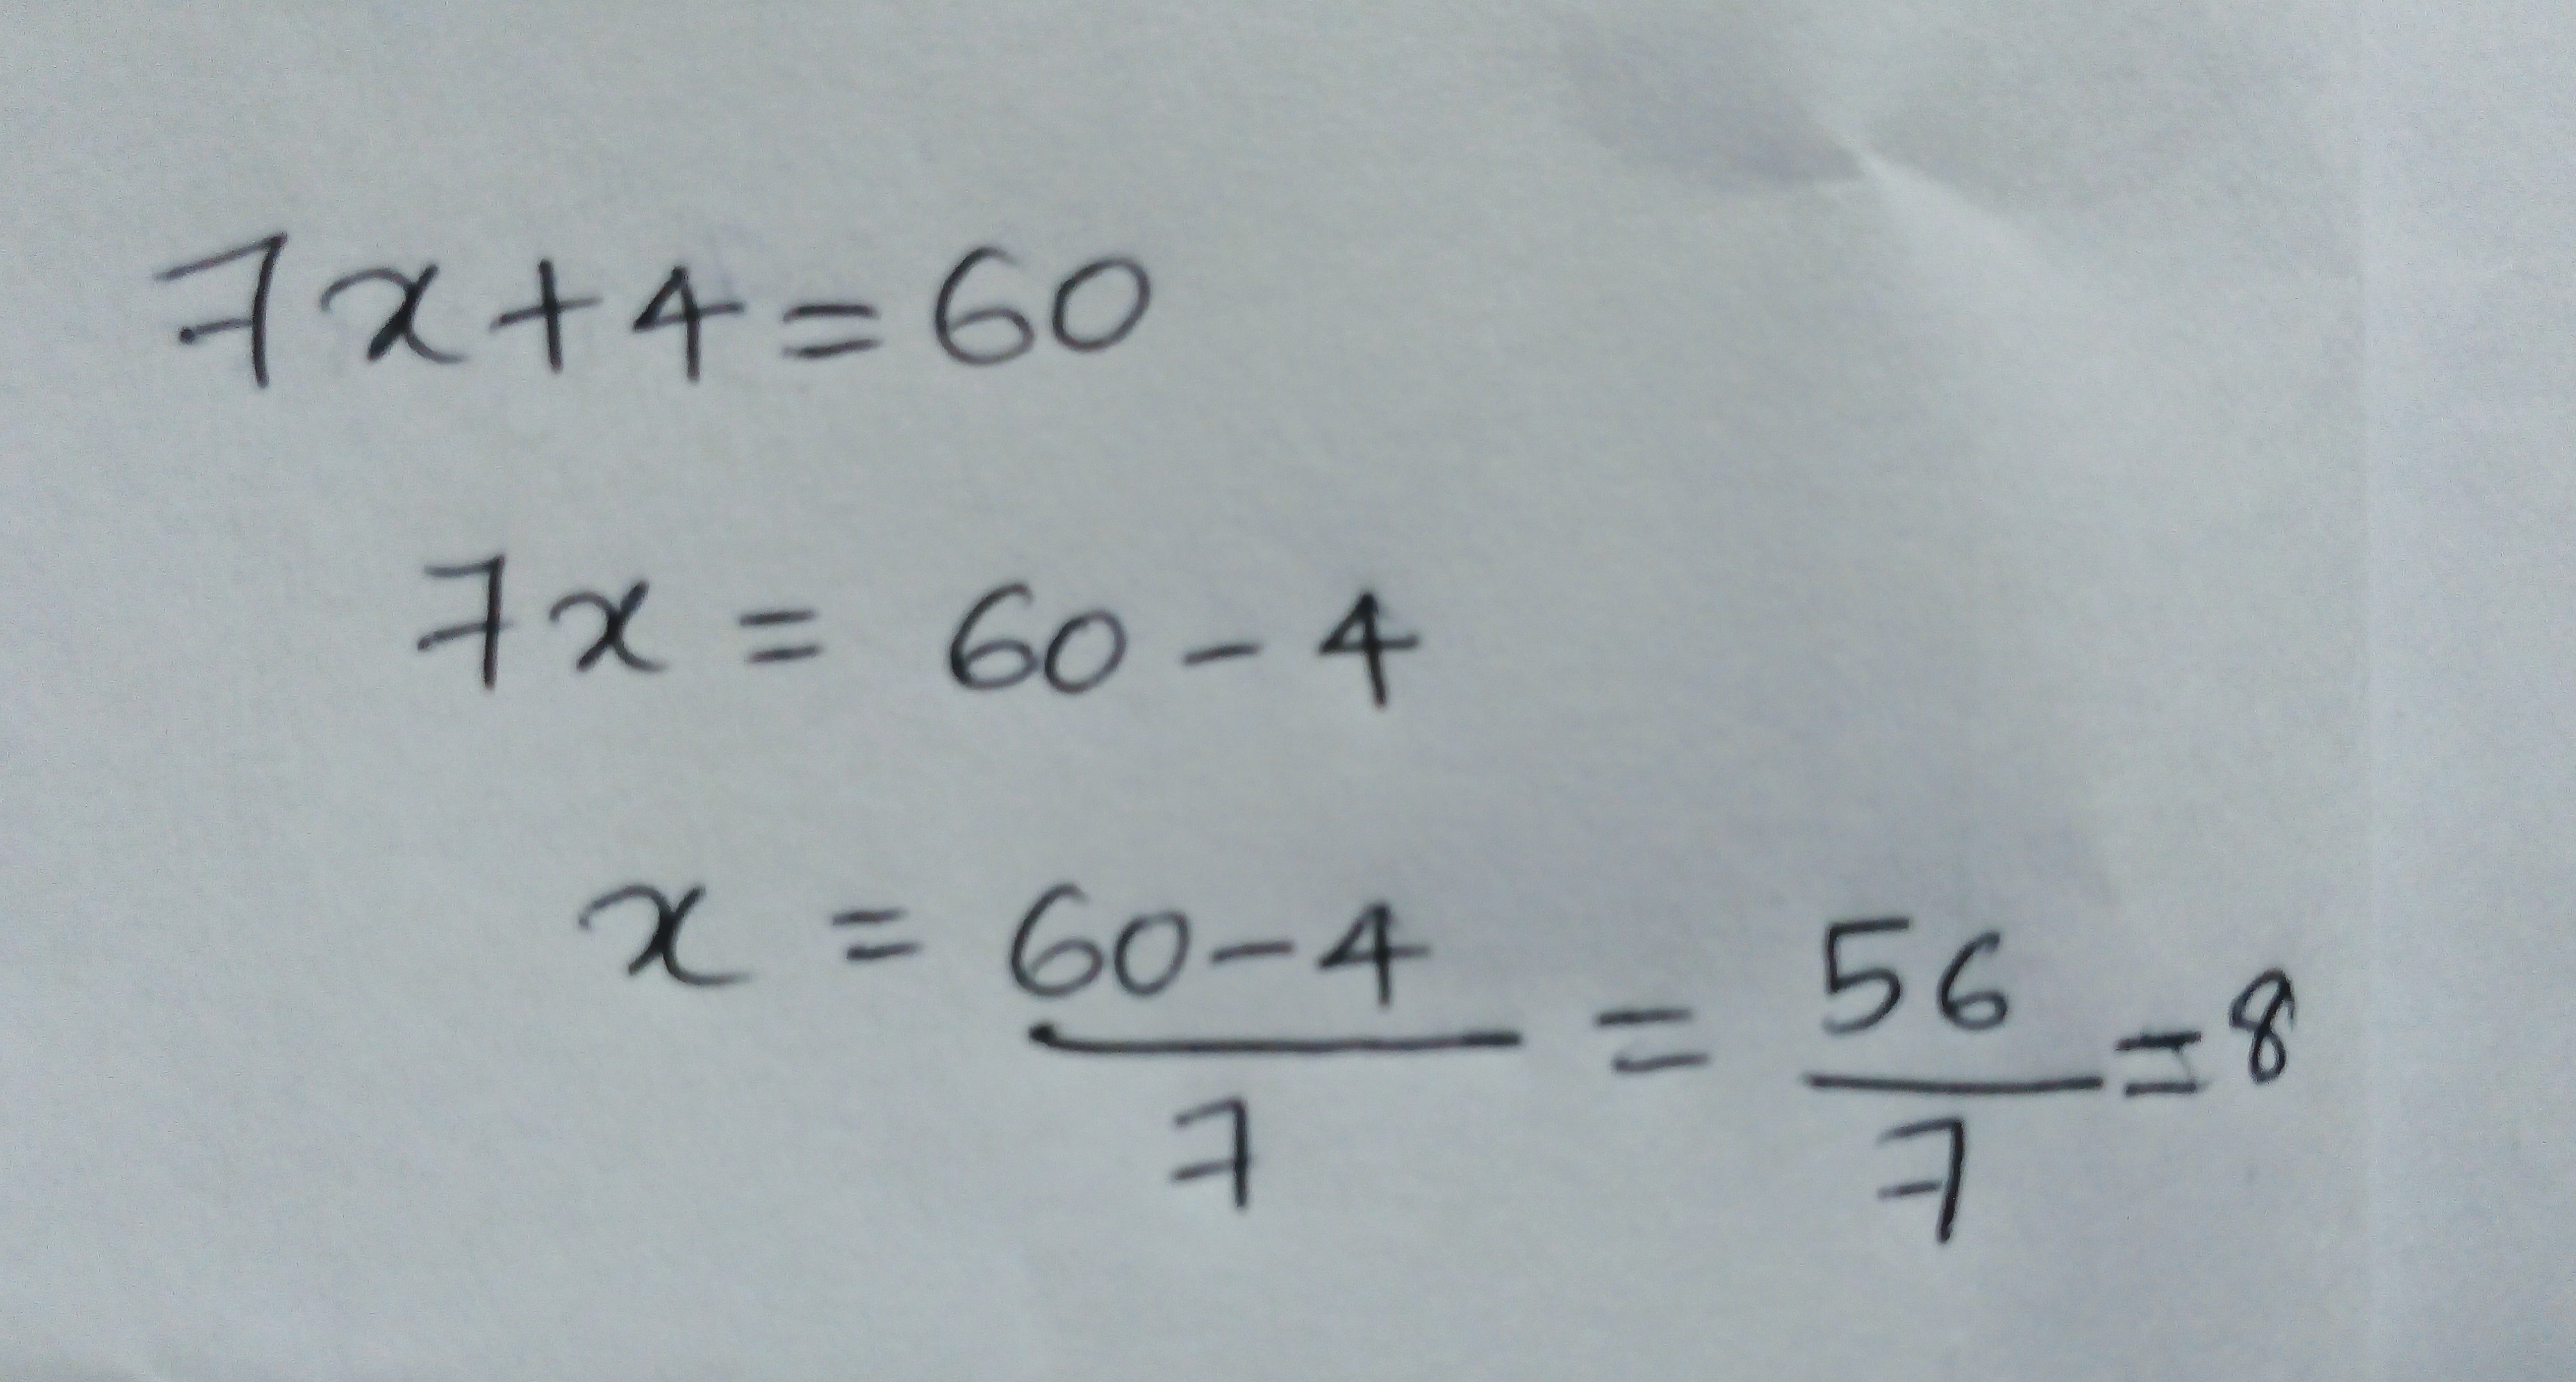 7x+4=60
7x = 60-4
x = 60-4/7 = 56/7 = 8